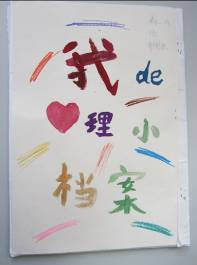 我de
理小
档案